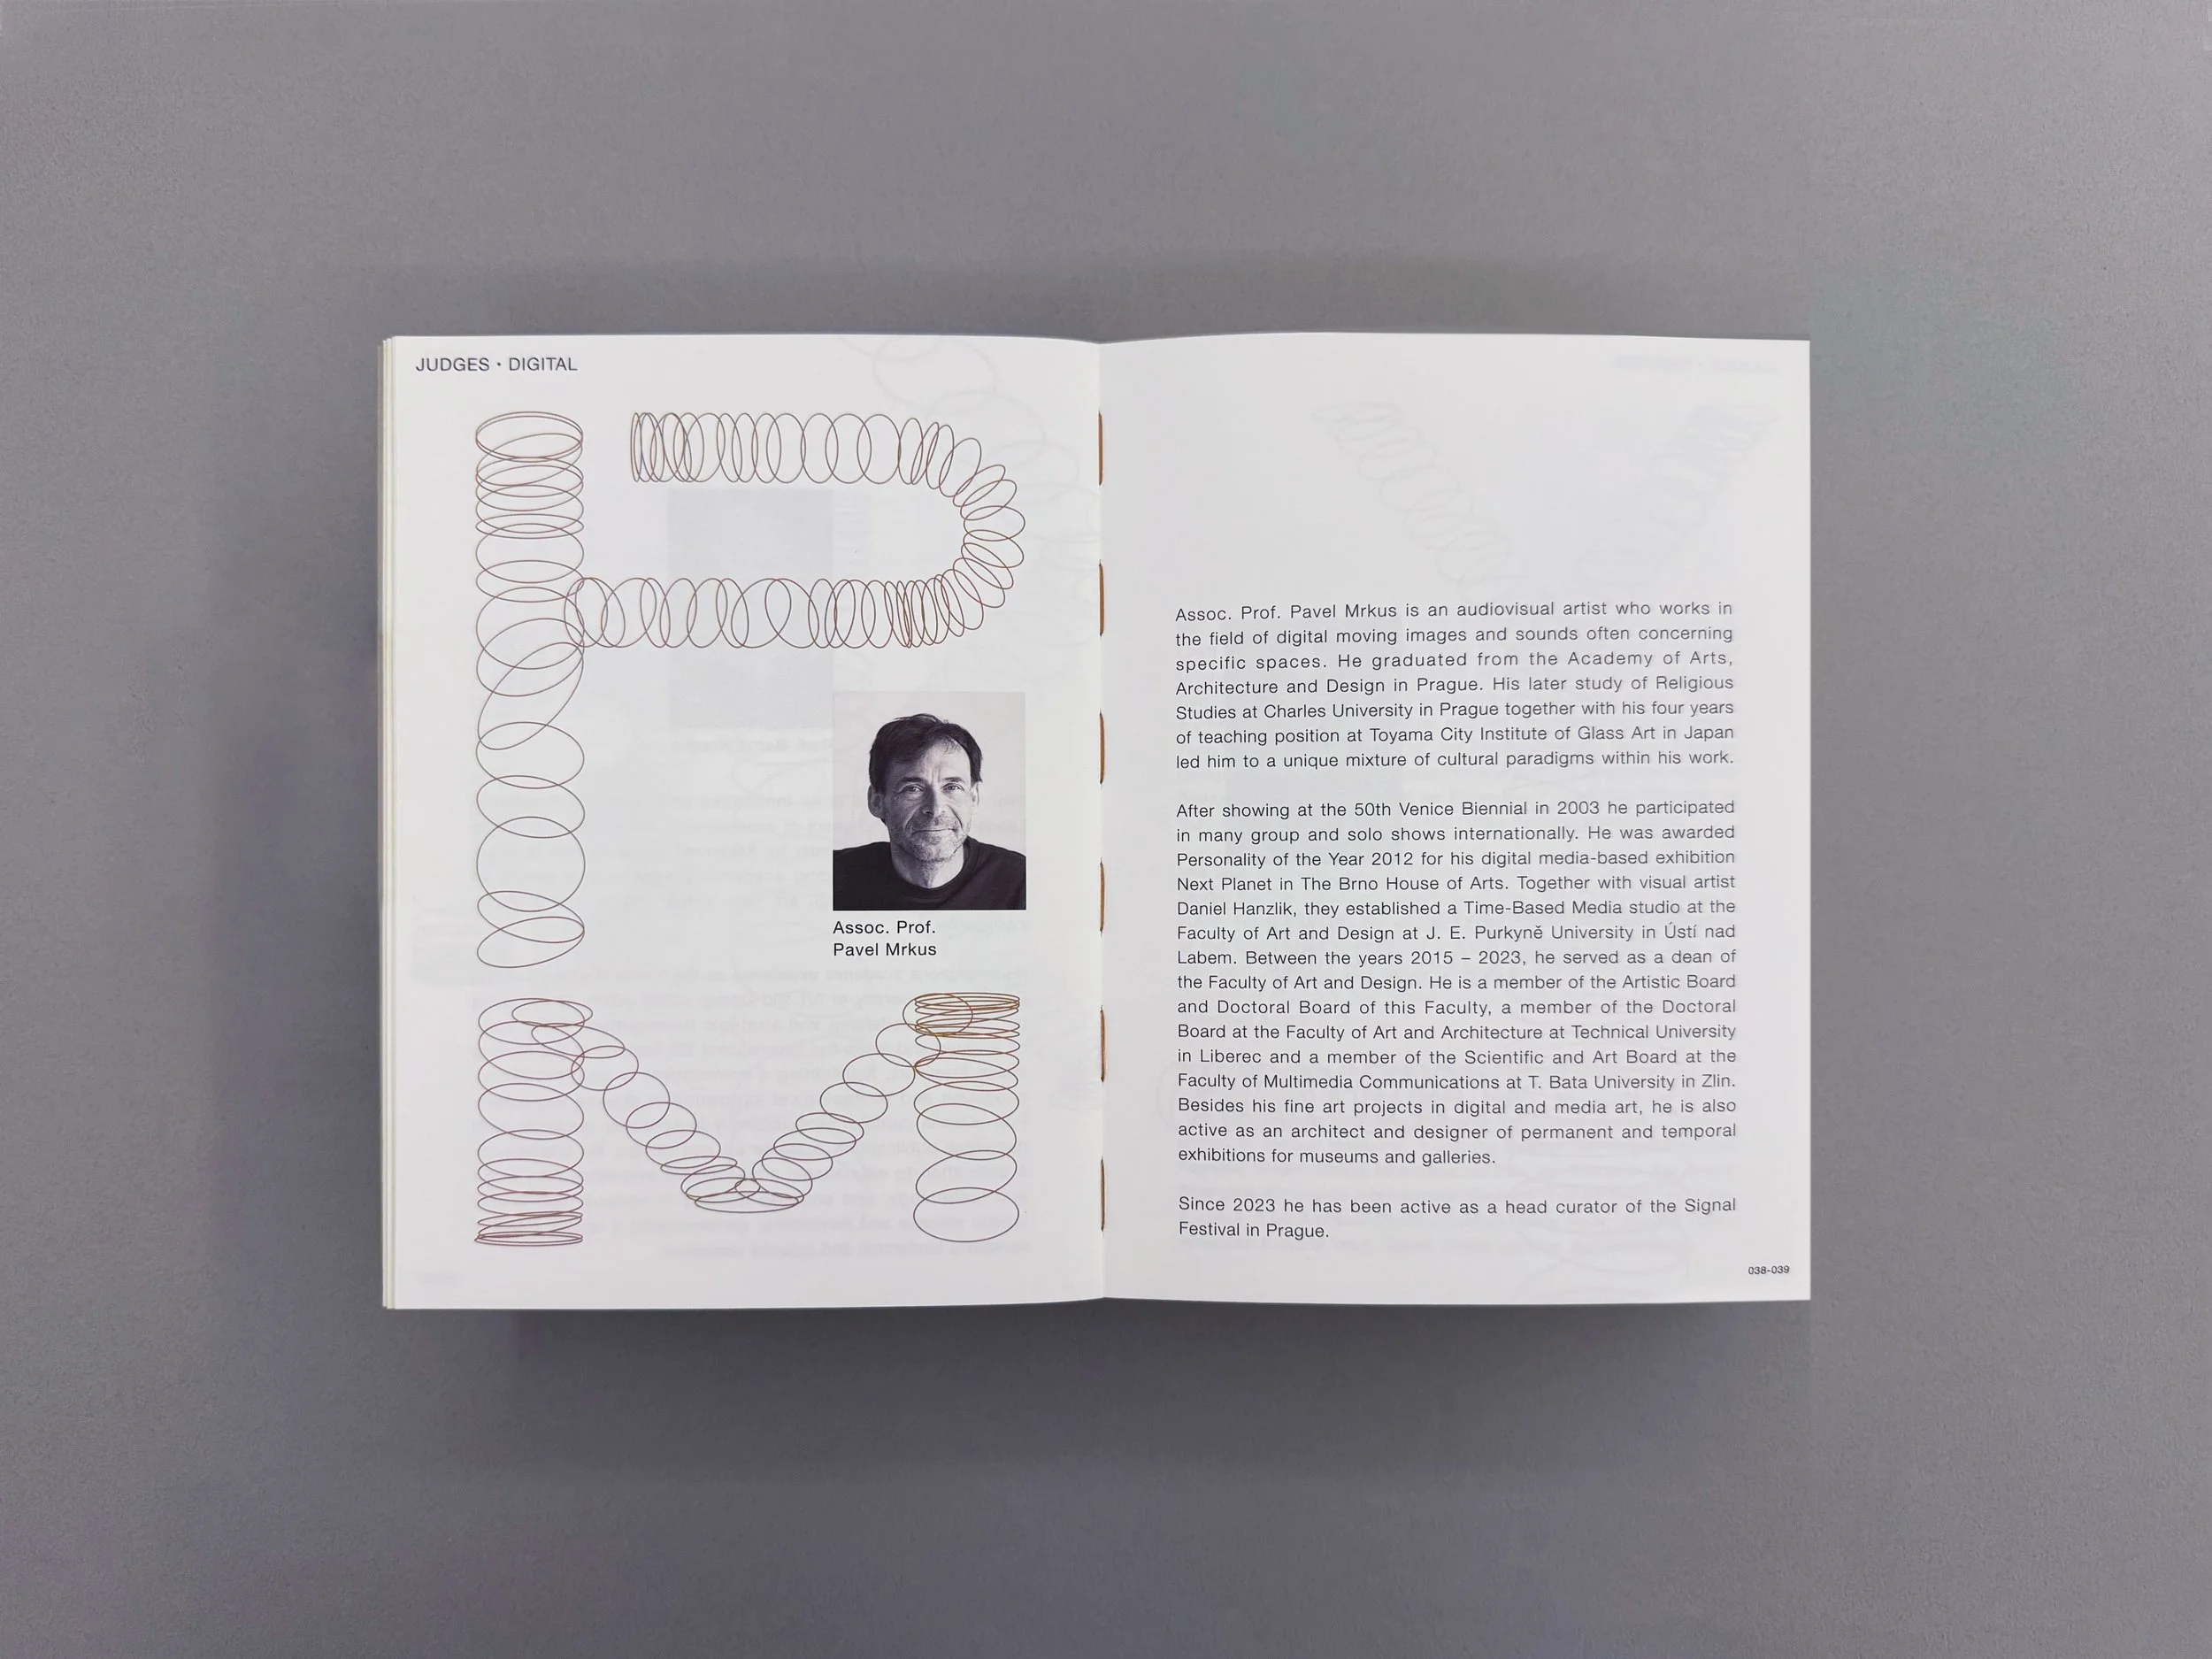 JUDGES • DIGITAL
P
M
Assoc. Prof.
Pavel Mrkus
Assoc. Prof. Pavel Mrkus is an audiovisual artist who works in
the field of digital moving images and sounds often concerning
specific spaces. He graduated from the Academy of Arts,
Architecture and Design in Prague. His later study of Religious
Studies at Charles University in Prague together with his four years
of teaching position at Toyama City Institute of Glass Art in Japan
led him to a unique mixture of cultural paradigms within his work.
After showing at the 50th Venice Biennial in 2003 he participated
in many group and solo shows internationally. He was awarded
Personality of the Year 2012 for his digital media-based exhibition
Next Planet in The Brno House of Arts. Together with visual artist
Daniel Hanzlik, they established a Time-Based Media studio at the
Faculty of Art and Design at J. E. Purkyně University in Ústí nad
Labem. Between the years 2015 – 2023, he served as a dean of
the Faculty of Art and Design. He is a member of the Artistic Board
and Doctoral Board of this Faculty, a member of the Doctoral
Board at the Faculty of Art and Architecture at Technical University
in Liberec and a member of the Scientific and Art Board at the
Faculty of Multimedia Communications at T. Bata University in Zlin.
Besides his fine art projects in digital and media art, he is also
active as an architect and designer of permanent and temporal
exhibitions for museums and galleries.
Since 2023 he has been active as a head curator of the Signal
Festival in Prague.
038-039